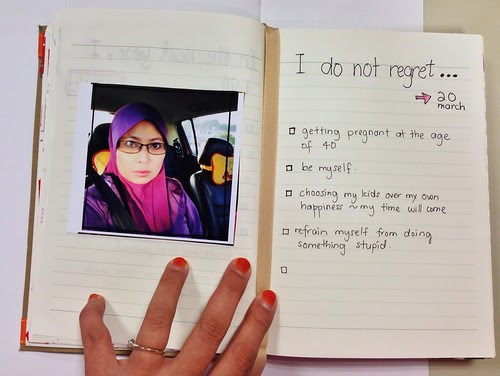 I do not regret...
20
march
getting pregnant at the age
of 40
be myself.
choosing my kids over my own
happiness ~ my time will come
refrain myself from doing
something stupid.